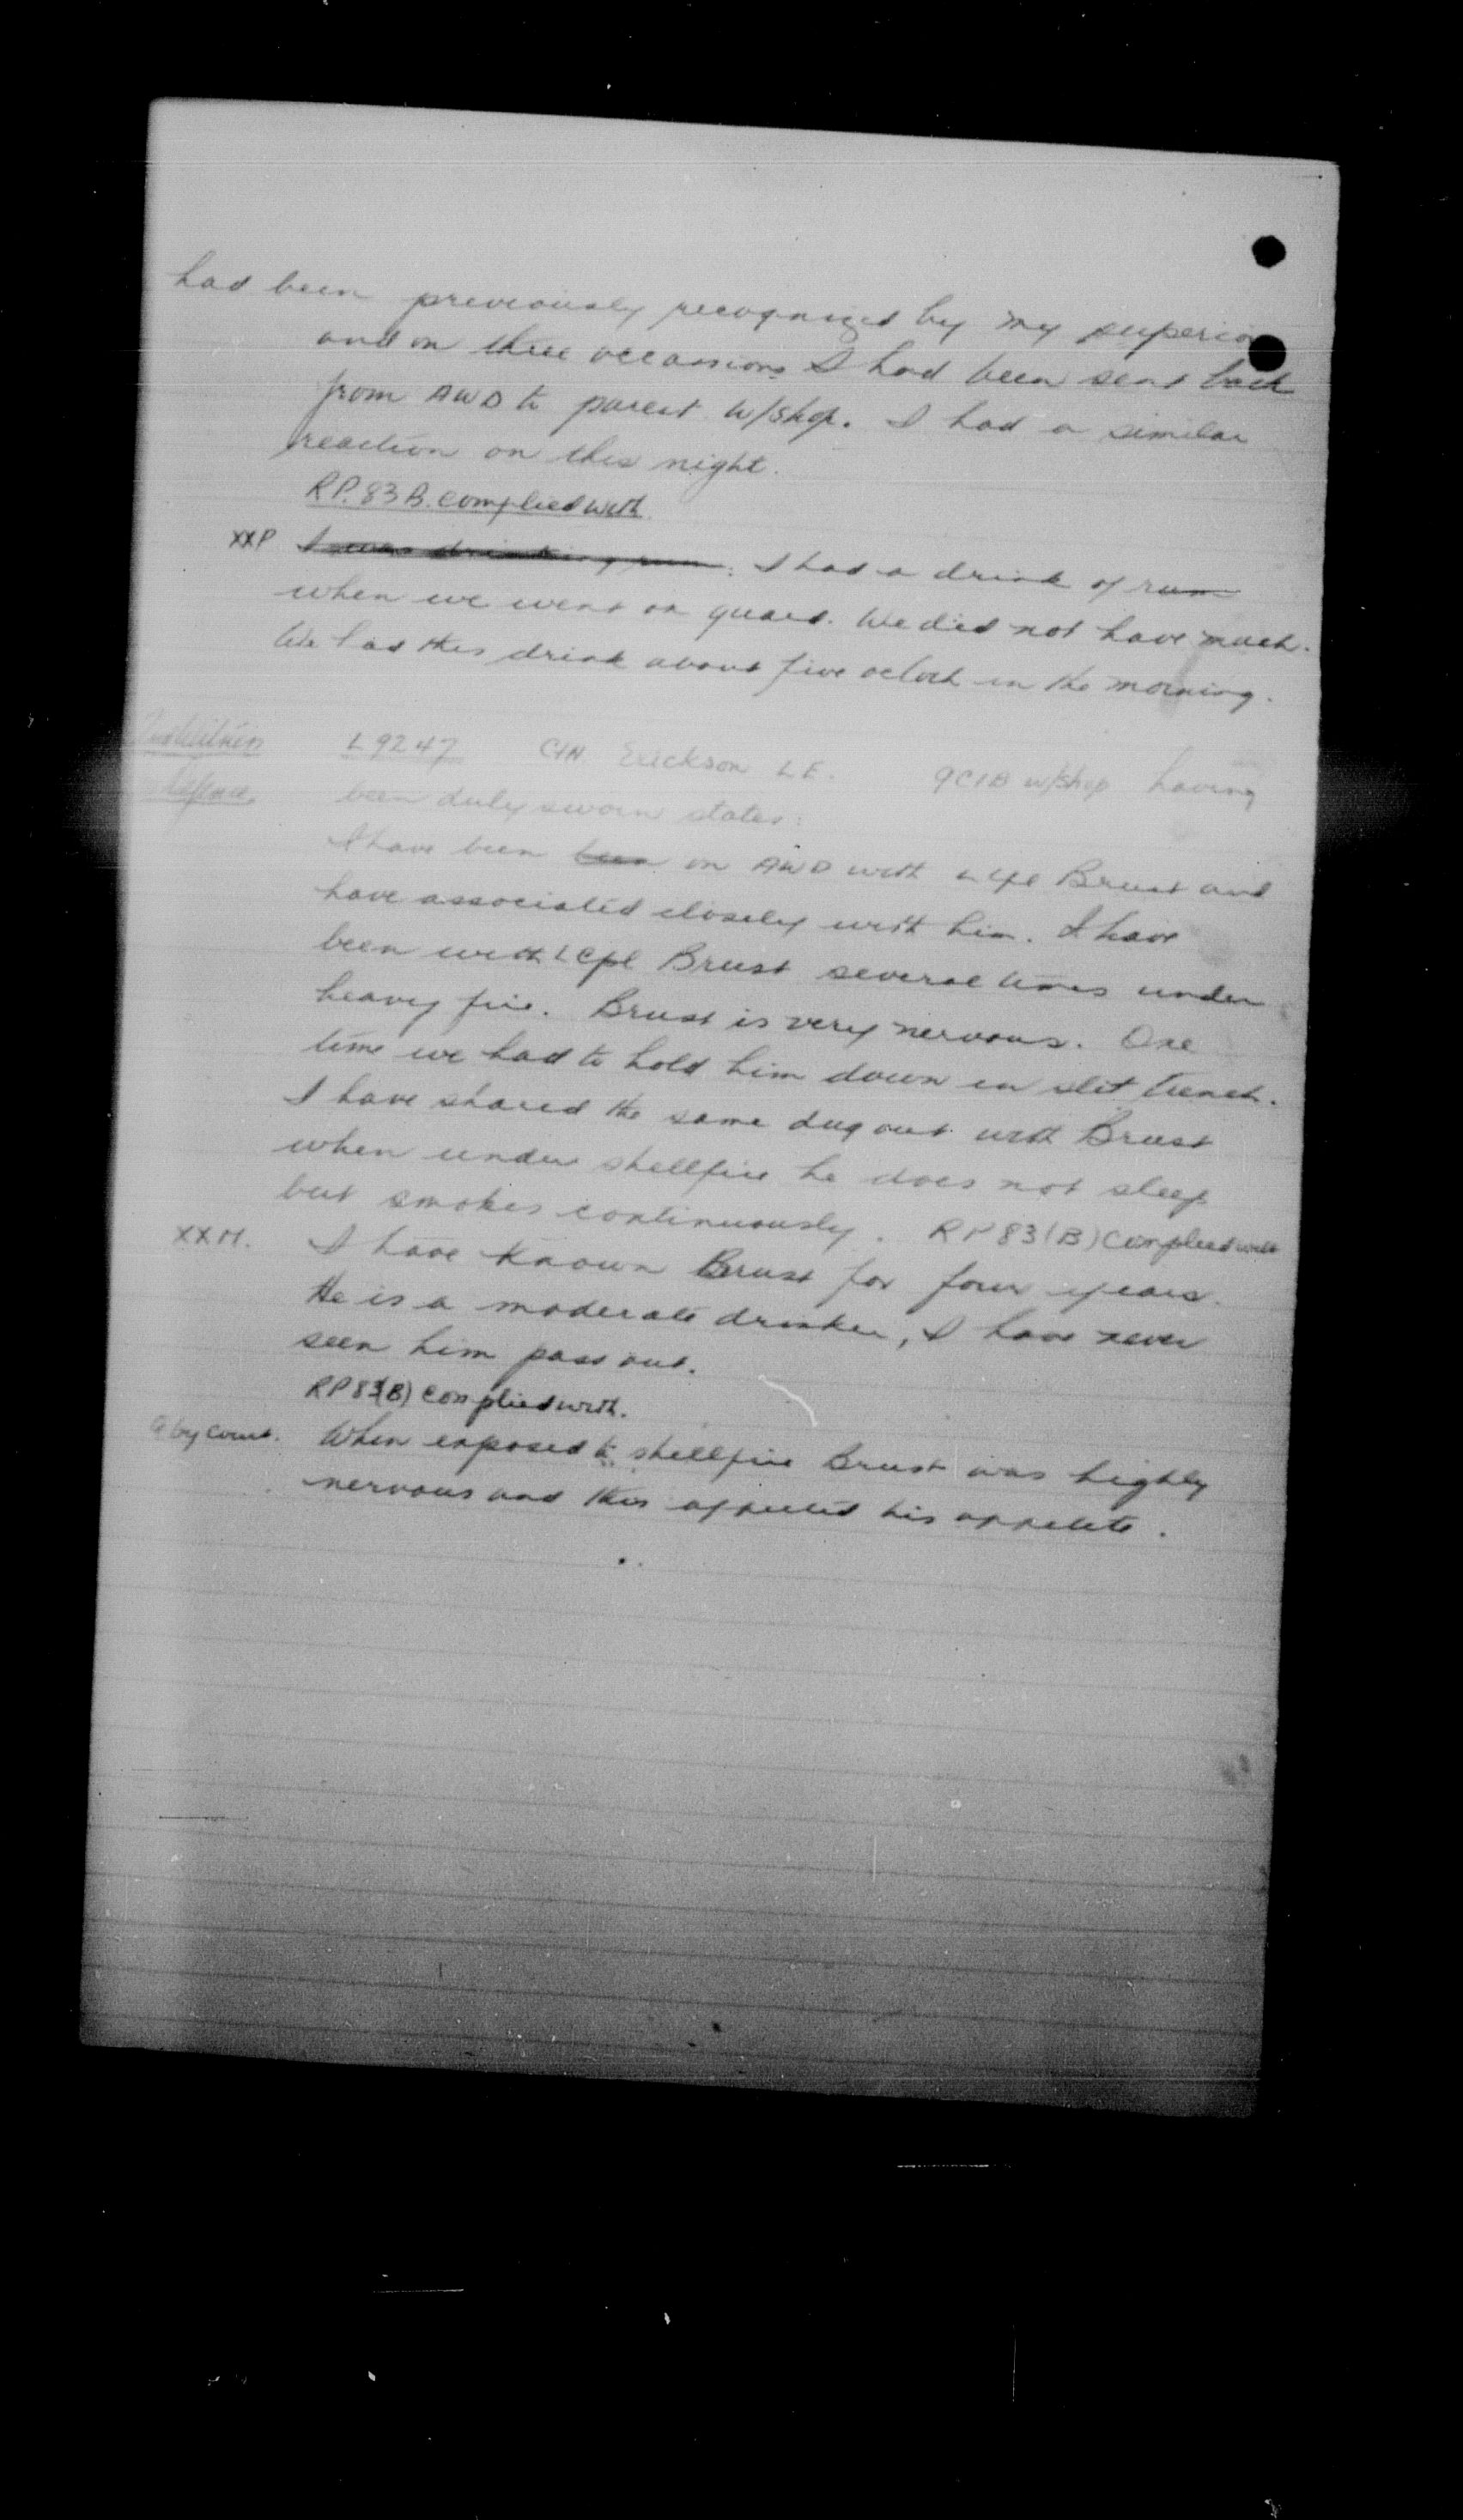 had been previously recognized by my superior
and on three occassions I had been sent back
from AWD to parent w/shop. I had a similar
reaction on this night.
RP. 83 B. complied with.
XXP I was drinking rum. I had a drink of rum
when we went on guard. We did not have much.
We had this drink about five oclock in the morning.
L 9247 Cfn. Erickson L E. 9 CIB w/shop having
defence. been duly sworn states:
I have been been on AWD with L Cpl Brust and
have associated closely with him. I have
been with L Cpl Brust several times under
heavy fire. Brust is very nervous. One
time we had to hold him down in slit trench.
I have shared the same dug out with Brust
when under shellfire he does not sleep
but smokes continuously. RP 83(B) Complied with
XXM. I have known Brust for four years.
He is a moderate drinker, I have never
seen him pass out.
RP 83(B) complied with.
Q by Court. When exposed to shellfire Brust was highly
nervous and this affected his appetite.